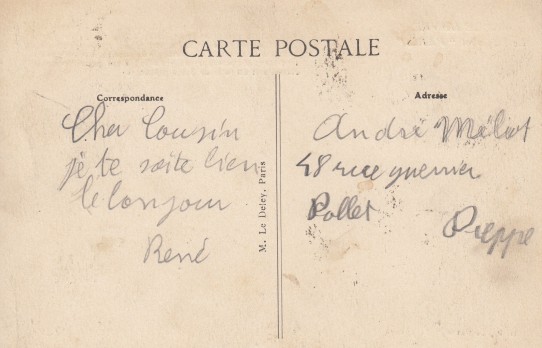 CARTE POSTALE
Correspondance
Cher Cousin
je te soite bien
le bonjour
René
M. Le Deley, Paris
Adresse
André
48 rue guerrier
Pollet
Dieppe